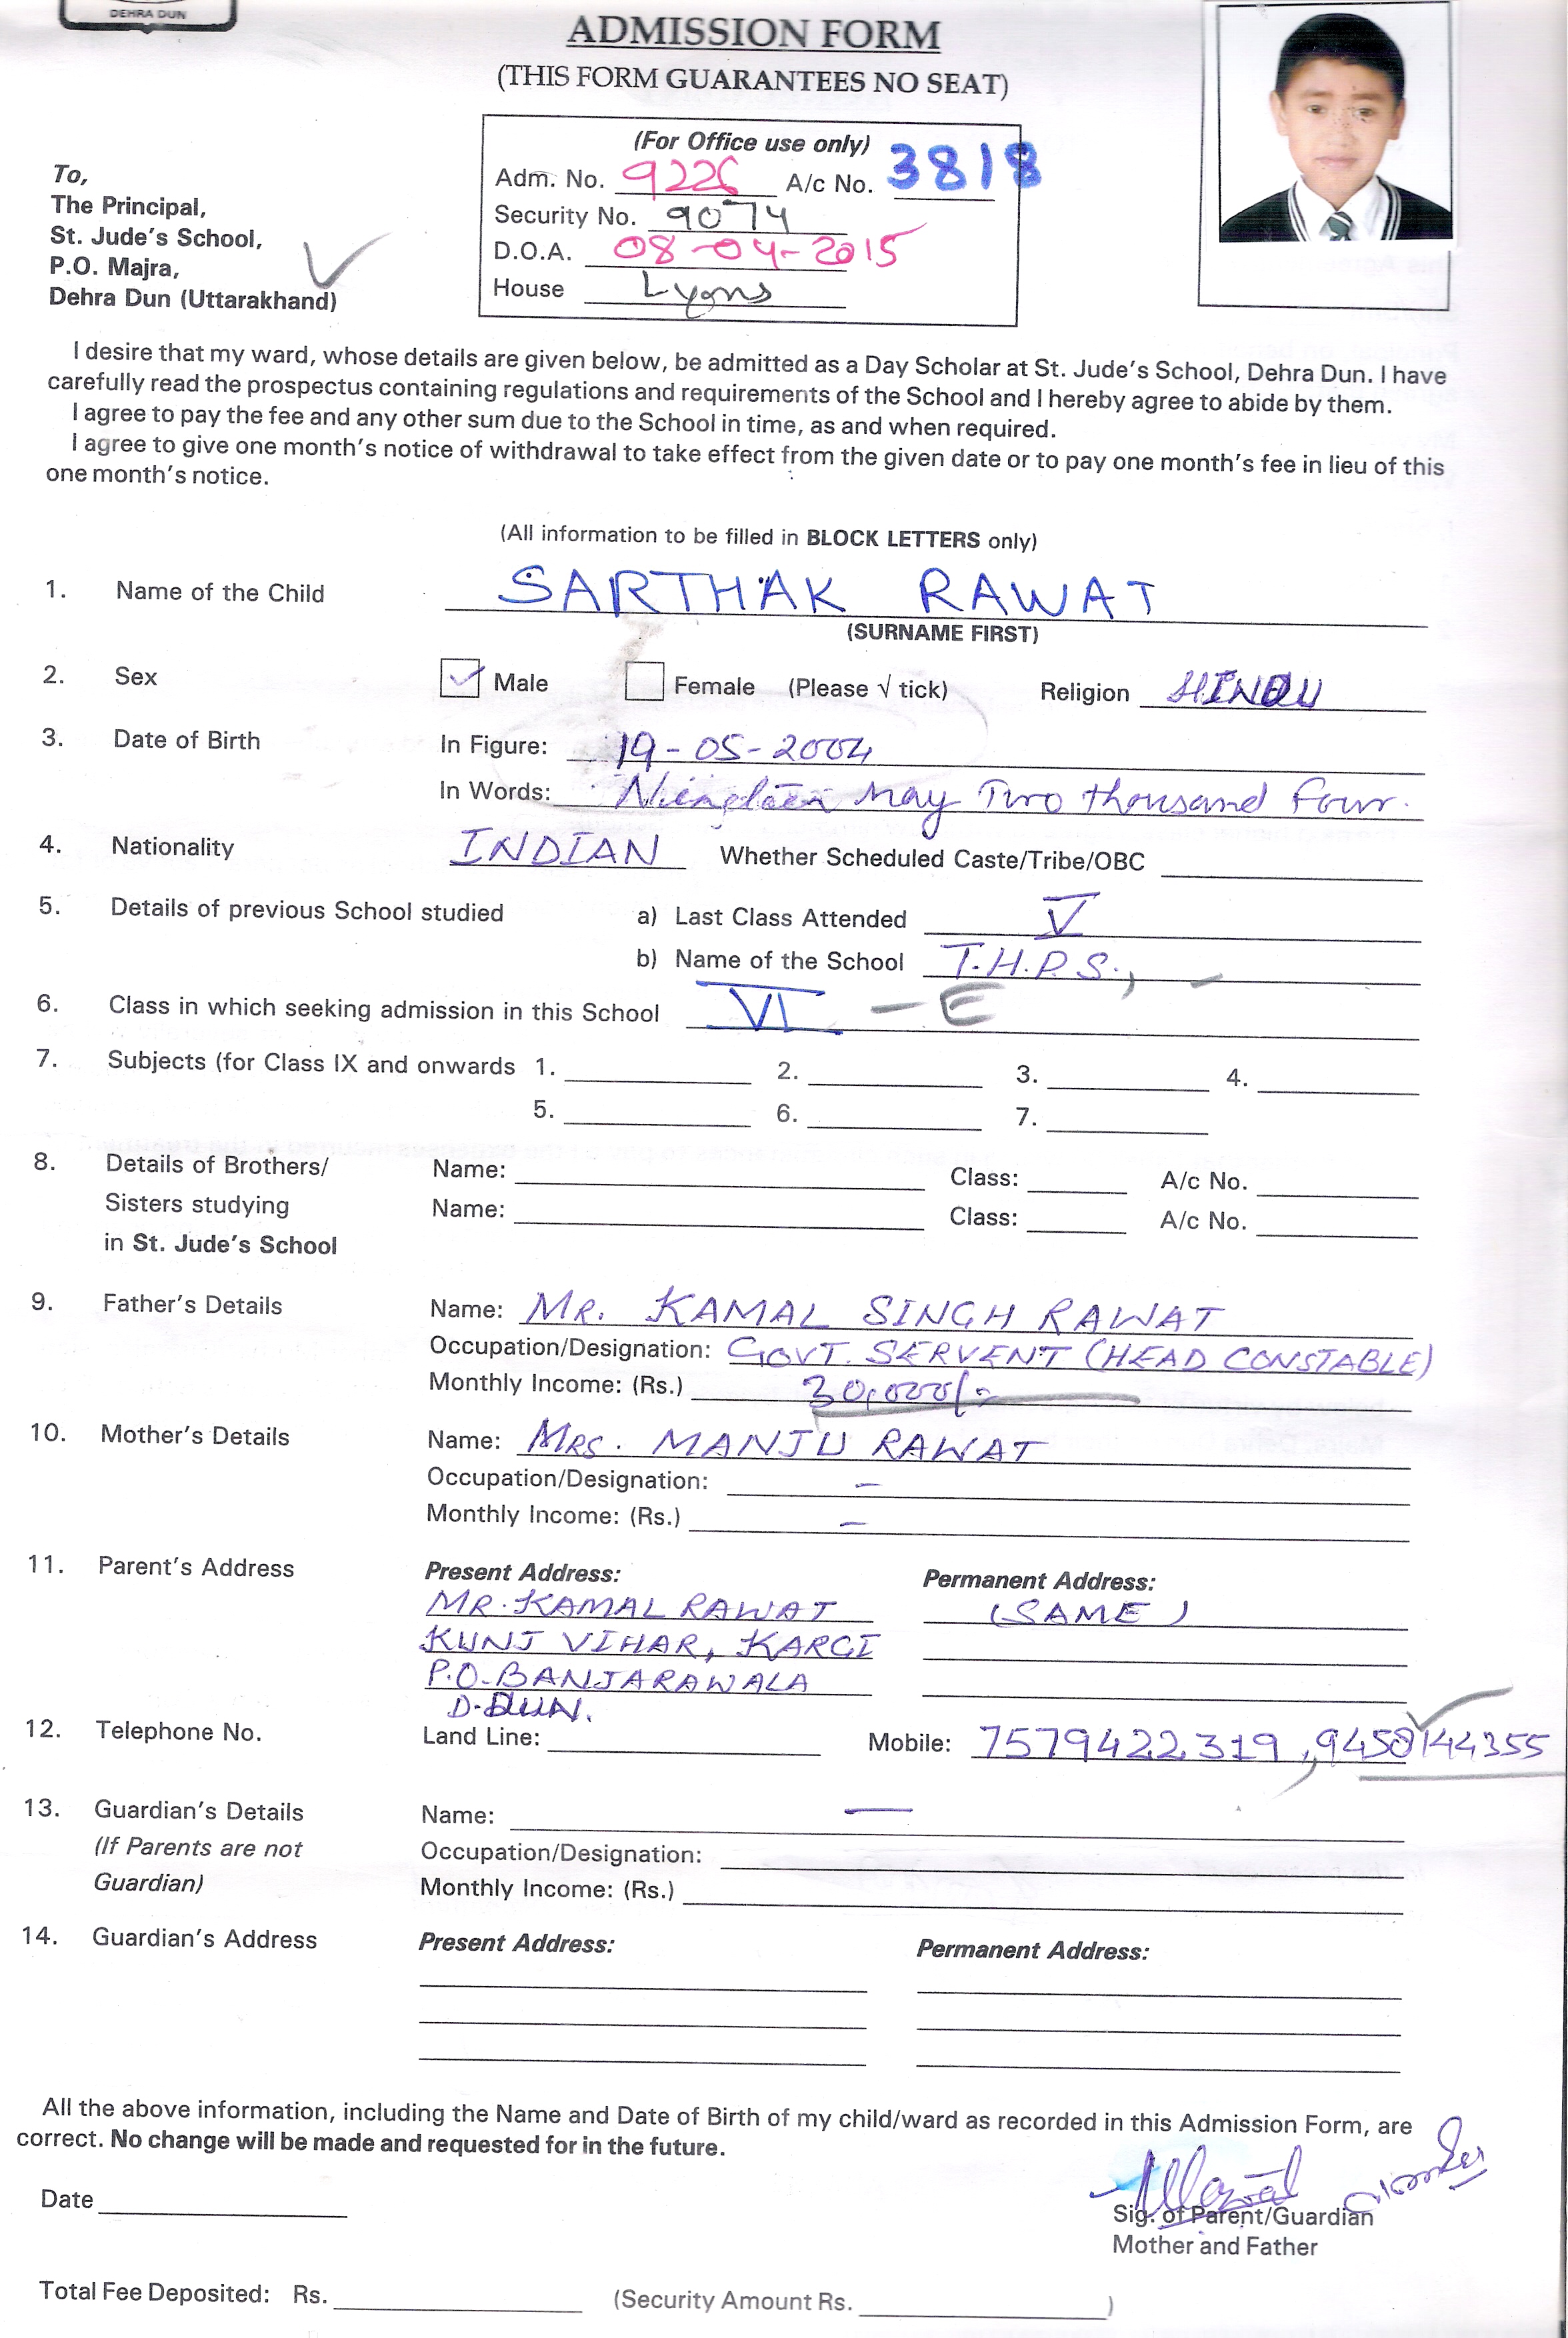 DEHRA DUN
ADMISSION FORM
(THIS FORM GUARANTEES NO SEAT)
(For Office use only)
Adm. No. 9226 A/c No. 3818
Security No. 9074
D.O.A. 08-04-2015
House Lyons
To,
The Principal,
St. Jude's School,
P.O. Majra,
Dehra Dun (Uttarakhand)
I desire that my ward, whose details are given below, be admitted as a Day Scholar at St. Jude's School, Dehra Dun. I have
carefully read the prospectus containing regulations and requirements of the School and I hereby agree to abide by them.
I agree to pay the fee and any other sum due to the School in time, as and when required.
I agree to give one month's notice of withdrawal to take effect from the given date or to pay one month's fee in lieu of this
one month's notice.
(All information to be filled in BLOCK LETTERS only)
1. Name of the Child SARTHAK RAWAT
(SURNAME FIRST)
2. Sex Male Female (Please √ tick) Religion HINDU
3. Date of Birth In Figure: 19-05-2004
In Words: May Two thousand Four.
4. Nationality INDIAN Whether Scheduled Caste/Tribe/OBC
5. Details of previous School studied a) Last Class Attended V
b) Name of the School T.H.P.S.,
6. Class in which seeking admission in this School VI - E
7. Subjects (for Class IX and onwards 1. 2. 3. 4.
5. 6. 7.
8. Details of Brothers/ Name: Class: A/c No.
Sisters studying Name: Class: A/c No.
in St. Jude's School
9. Father's Details Name: MR. KAMAL SINGH RAWAT
Occupation/Designation: GOVT. SERVENT (HEAD CONSTABLE)
Monthly Income: (Rs.) 30,000/-
10. Mother's Details Name: MRS. MANJU RAWAT
Occupation/Designation: -
Monthly Income: (Rs.) -
11. Parent's Address Present Address: Permanent Address:
MR. KAMAL RAWAT (SAME)
KUNJ VIHAR, KARGI
P.O. BANJARAWALA
D-DUN.
12. Telephone No. Land Line: Mobile: 7579422319, 9458144355
13. Guardian's Details Name: -
(If Parents are not Occupation/Designation:
Guardian) Monthly Income: (Rs.)
14. Guardian's Address Present Address: Permanent Address:
All the above information, including the Name and Date of Birth of my child/ward as recorded in this Admission Form, are
correct. No change will be made and requested for in the future.
Date
Sig. of Parent/Guardian
Mother and Father
Total Fee Deposited: Rs. (Security Amount Rs. )